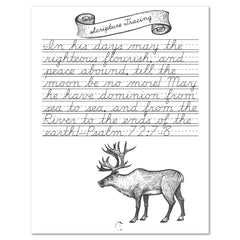 Scripture Tracing
In his days may the
righteous flourish, and
peace abound, till the
moon be no more! May
he have dominion from
sea to sea, and from the
River to the ends of the
earth! -Psalm 72:7-8